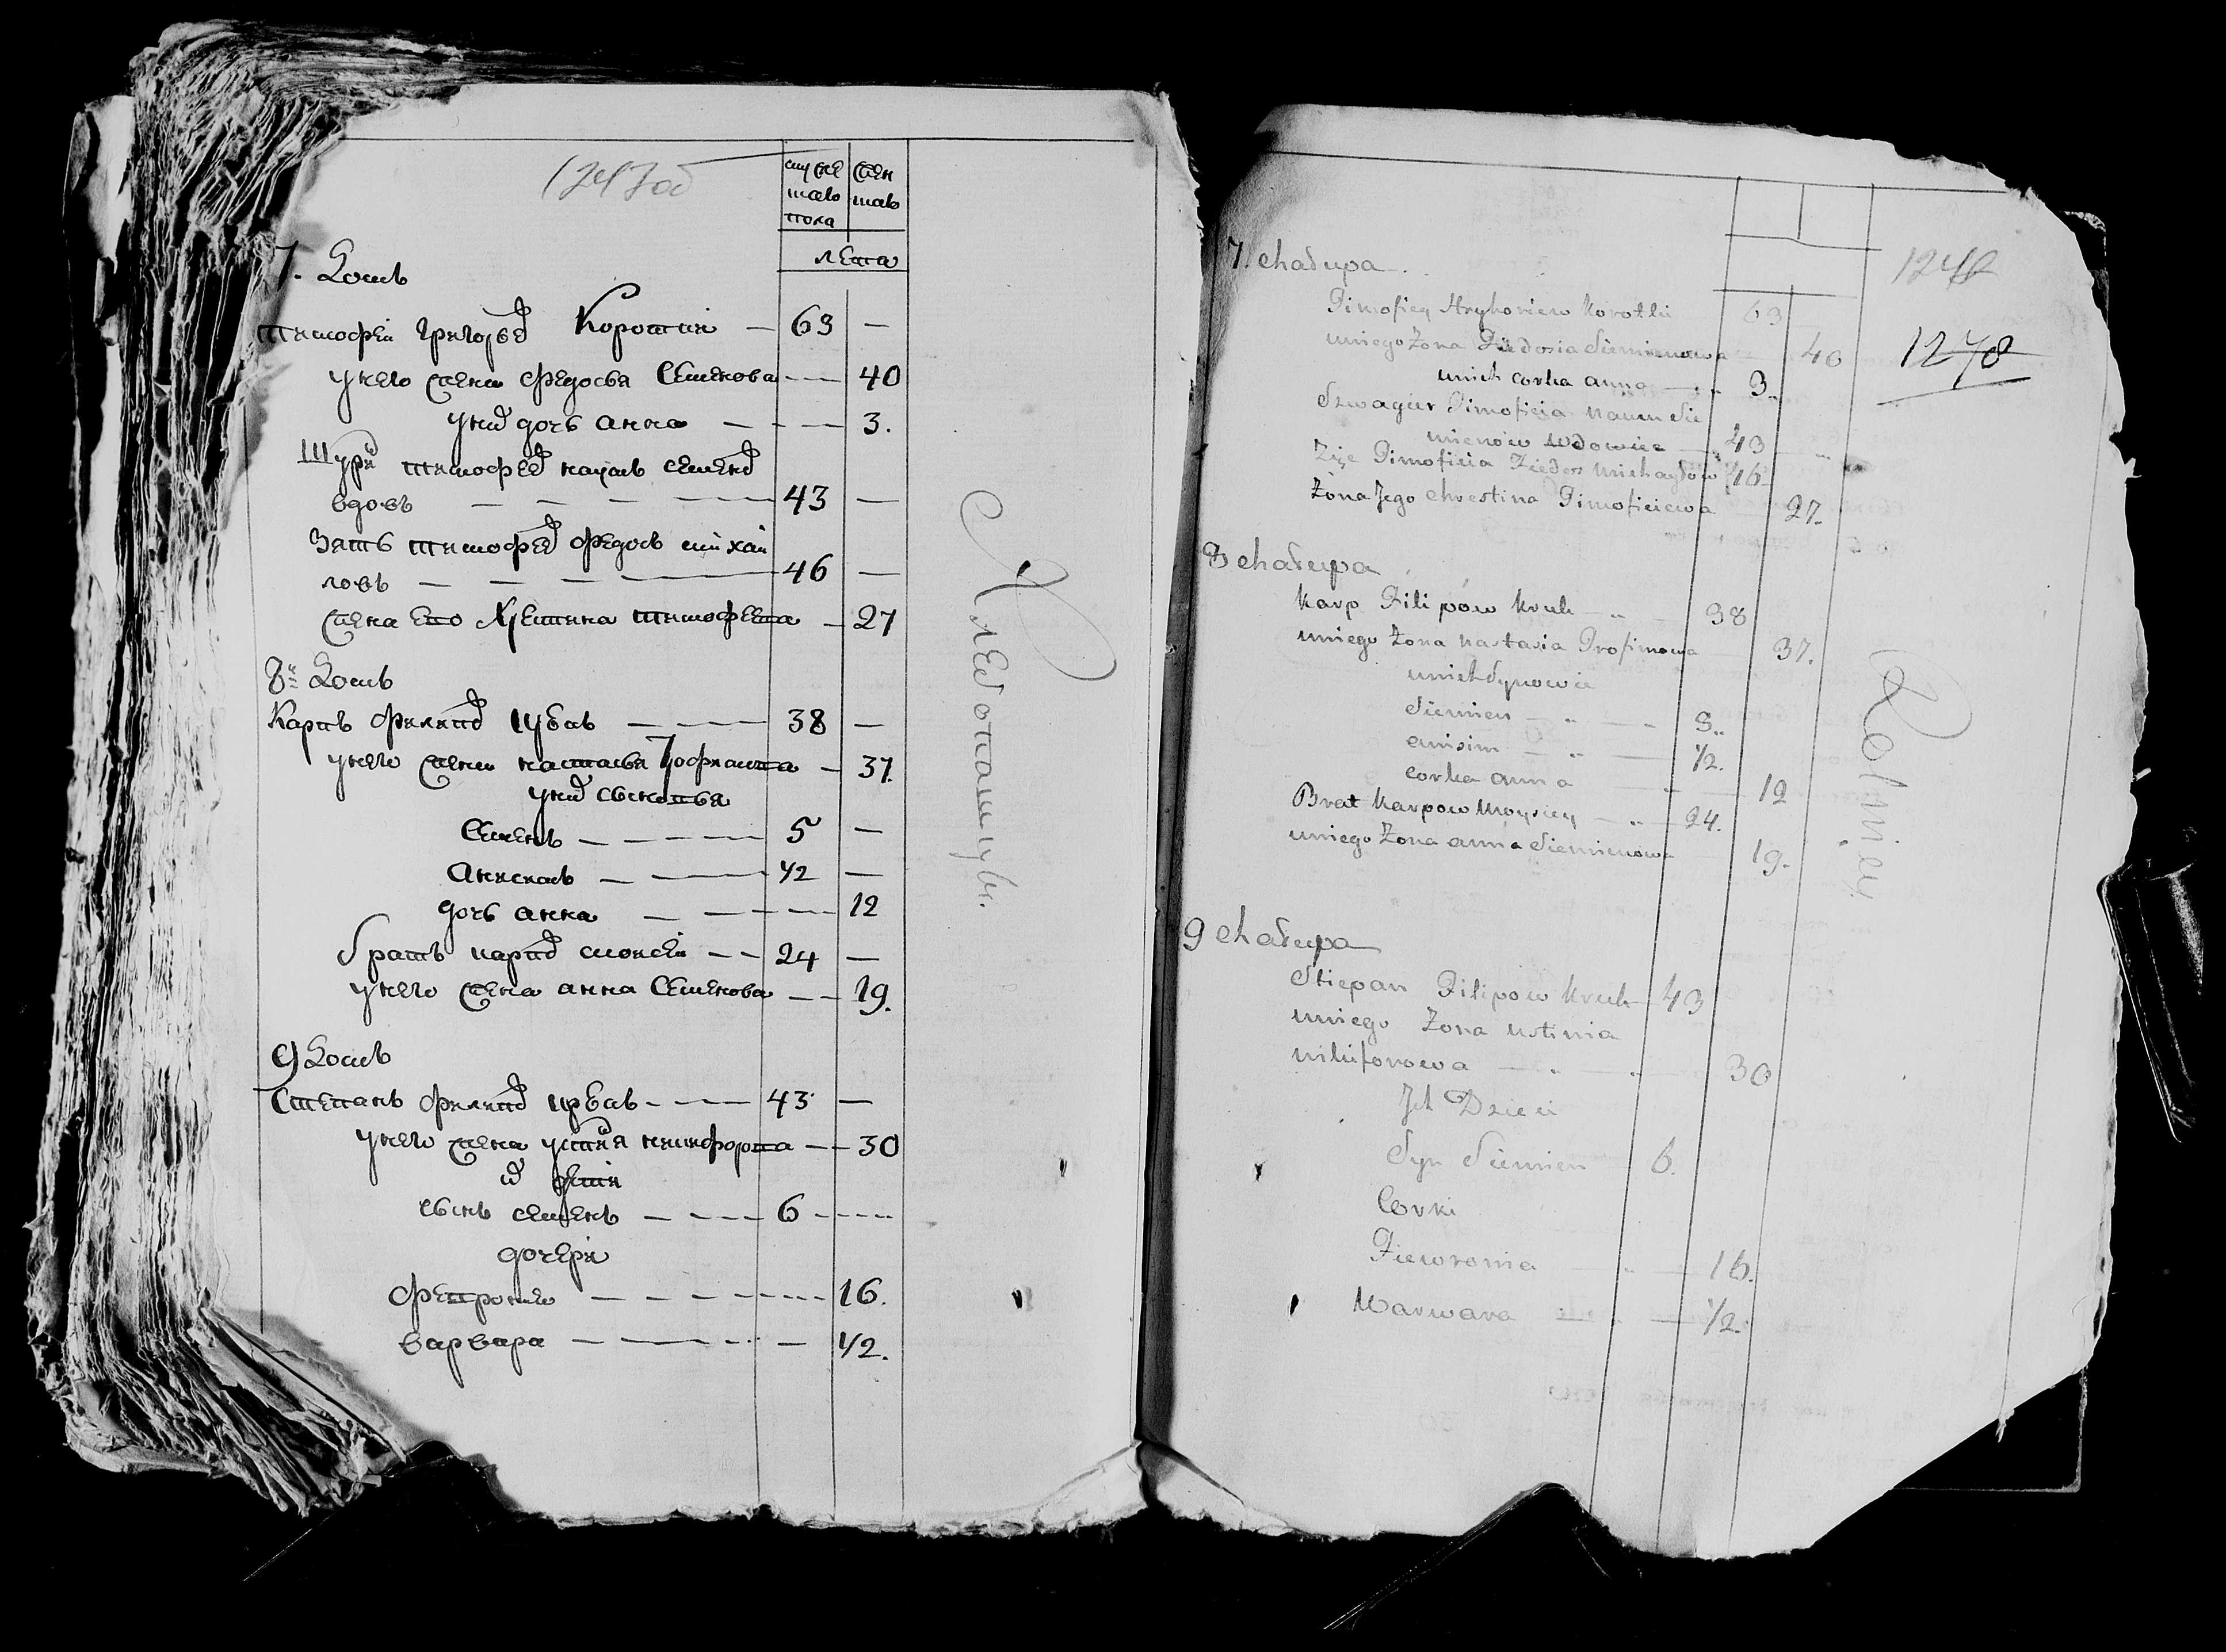 1247 об
мужеска пола
женска
лета
7. Домъ
тимофей григорьев Короткий — 63 —
у него жена федосья Семенова — 40
у них дочь анна — 3.
Шурин тимофеев наум семенов
вдовъ — 43 —
Зять тимофеев федоръ михай
ловъ — 46 —
жена его Хрестина тимофеева — 27
8й Домъ
Карпъ филипов — 38 —
у него жена настасья Трофимова — 37.
у них сыновья
Семенъ — 5 —
Анисимъ — 1/2 —
дочь анна — 12
братъ карпов моисей — 24 —
у него жена анна Семенова — 19.
9 Домъ
Степанъ филипов — 43 —
у него жена устиния никифорова — 30
их дети
сынъ семенъ — 6 —
дочери
феврония — 16.
варвара — 1/2.
Хлебопашцы.
1248
1278
7. chałupa
Timofiey Hryhoriew Korotki 63
u niego Żona Fiedosia Siemienowa 40
u nich corka anna — 3.
Szwagier Timofieia Naum Sie
mienow wdowiec — 43
Zięc Timofieia Fiedor Michayłow 46
Żona Jego Chrestina Timofieiewa 27.
8 chałupa
Karp Filipow Kruk — 38
u niego Żona Nastasia Trofimowa 37.
u nich Synowie
Siemien — 5.
anisim — 1/2.
corka anna — 12
Brat Karpow Moysiey — 24.
u niego Żona anna Siemienowa 19.
9 chałupa
Stiepan Filipow Kruk 43
u niego Żona Ustinia
nikiforowa — 30
Jch Dzieci
Syn Siemien 6.
Corki
Fiewronia — 16.
Warwara — 1/2.
Rolniey.